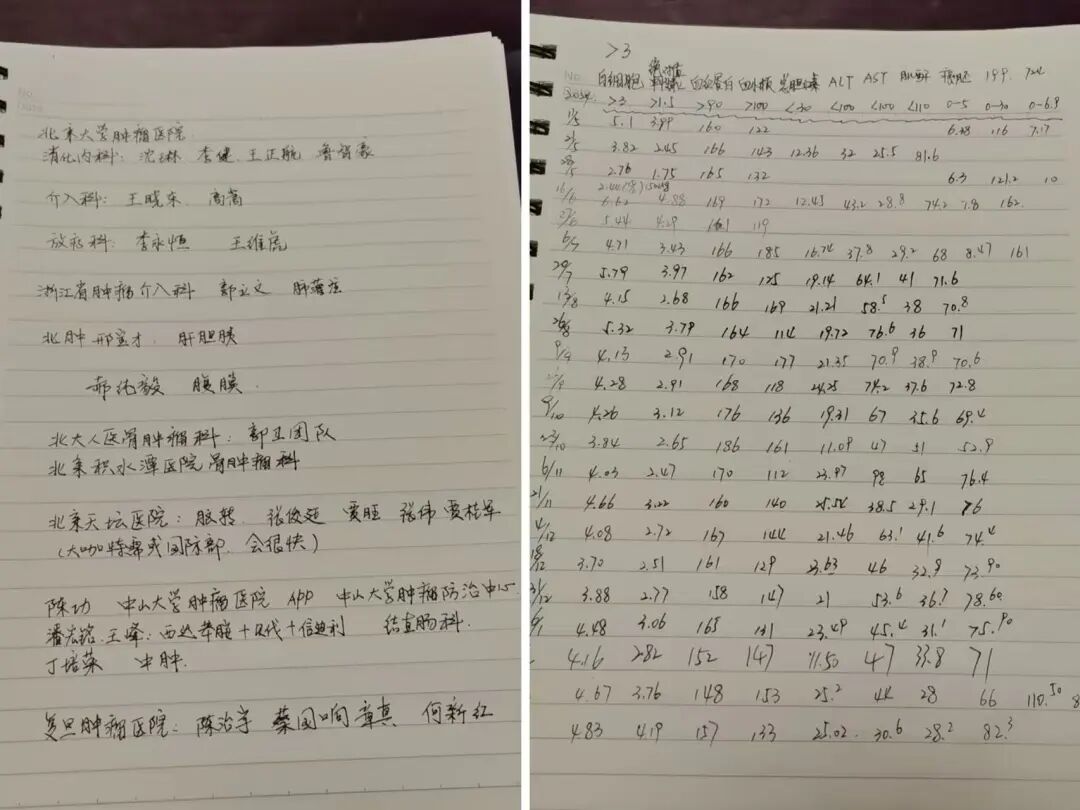 北京大学肿瘤医院
消化内科: 沈琳 李健 王正航 鲁智豪
介入科: 王晓东 高嵩
放疗科: 李永恒 王维虎
浙江省肿瘤介入科 郭立文
北肿 邢宝才 肝胆胰
郝纯毅 腹膜
北大人医骨肿瘤科: 郭卫团队
北京积水潭医院骨肿瘤科
北京天坛医院: 脑转 张俊廷 贾旺 张伟 贾桂军
(大咖特需或国际部, 会很快)
陈功 中山大学肿瘤医院 APP 中山大学肿瘤防治中心
潘宏铭 王峰: 西达苯胺+贝伐+信迪利 结直肠科
丁培荣 中肿
复旦肿瘤医院: 陈治宇 蔡国响 章真 何新红
>3
白细胞 绝对值 血红蛋白 血小板 总胆红素 ALT AST 肌酐 癌胚 199 724
>3 >1.5 >90 >100 <30 <100 <100 <110 0-5 0-30 0-6.9
5.1 3.99 160 122 6.38 116 7.17
3.82 2.45 166 143 12.36 32 25.5 81.6
2.76 1.75 165 132 6.3 121.2 10
6.62 4.88 169 172 12.45 43.2 28.8 74.2 7.8 162
5.44 4.29 161 119
4.71 3.43 166 185 16.74 37.8 29.2 68 8.47 161
5.79 3.97 162 125 19.14 64.1 41 71.6
4.15 2.68 166 169 21.21 58.5 38 70.8
5.32 3.79 164 114 19.72 76.6 36 71
9/9 4.13 2.91 170 177 21.35 70.9 38.9 70.6
4.28 2.91 168 118 24.25 74.2 37.6 72.8
9/10 4.26 3.12 176 136 19.31 67 35.6 69.4
23/10 3.84 2.65 186 161 11.09 47 31 52.9
6/11 4.03 2.47 170 112 23.97 98 65 76.4
21/11 4.66 3.22 160 140 25.54 38.5 29.1 76
4/12 4.08 2.72 167 144 21.46 63.1 41.6 74.4
18/12 3.70 2.51 161 129 23.63 46 32.9 73.90
31/12 3.88 2.77 158 147 21 53.6 36.7 78.60
4.48 3.06 165 131 23.49 45.4 31.1 75.90
4.16 2.82 152 147 11.50 47 33.8 71
4.67 3.76 148 153 25.2 44 28 66 110.50
4.83 4.19 157 133 25.02 30.6 28.2 82.3